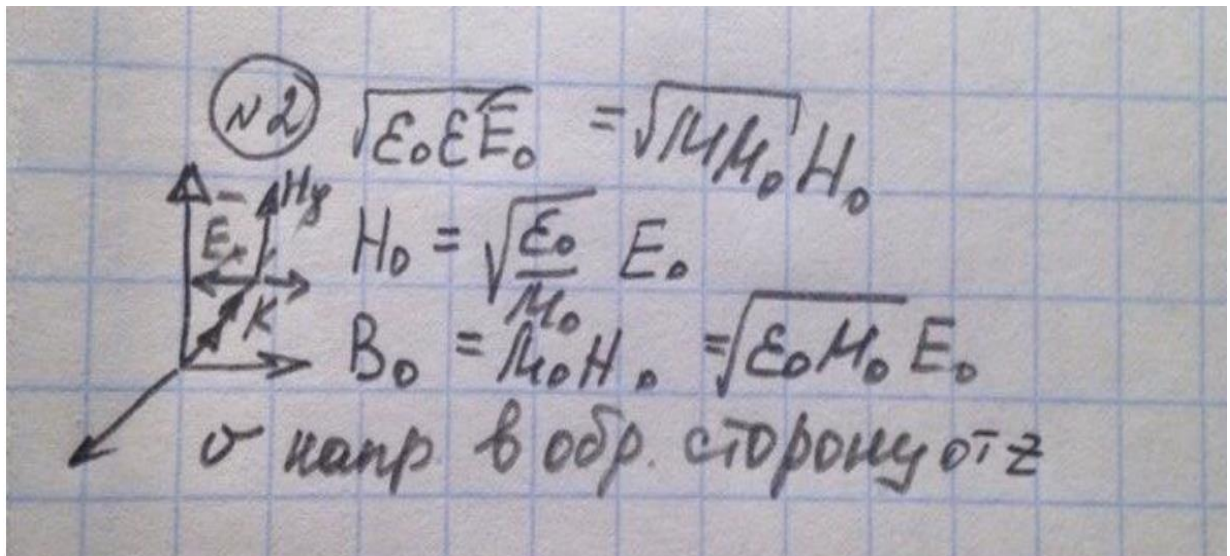 N2 √ε₀εE₀ = √μμ₀ H₀
H₀ = √(ε₀/μ₀) E₀
B₀ = μ₀H₀ = √ε₀μ₀ E₀
Hy
Ex
K
v напр. в обр. сторону от z